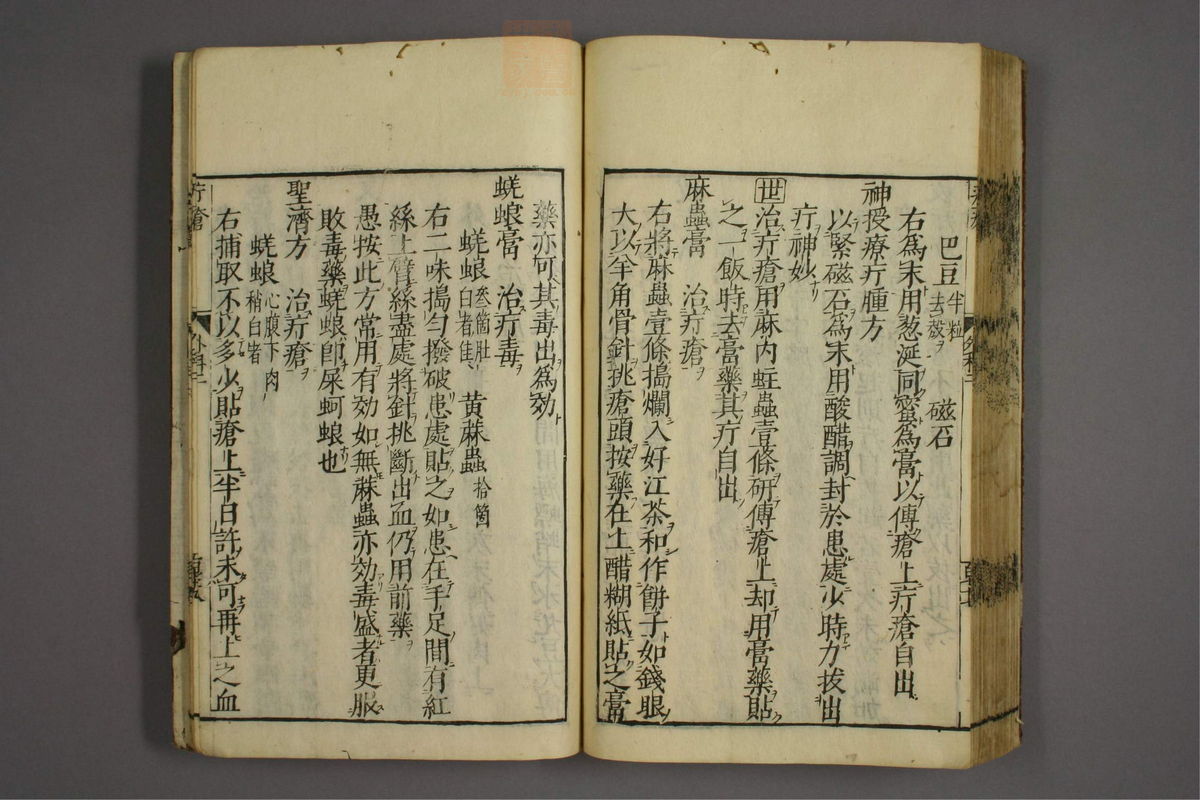 巴豆 半粒去殼 磁石
右爲末用葱涎同蜜爲膏以傅瘡上疔瘡自出
神授療疔腫方
以緊磁石爲末用酸醋調封於患處少時力拔出
疔神妙
世治疔瘡用麻內蛀蟲壹條研傅瘡上却用膏藥貼
之一飯時去膏藥其疔自出
麻蟲膏 治疔瘡
右將麻蟲壹條搗爛入好江茶和作餅子如錢眼
大以羊角骨針挑瘡頭按藥在上醋糊紙貼之膏
藥亦可其毒出爲効
蜣蜋膏 治疔毒
蜣蜋 叄箇肚白者佳 黃蔴蟲 拾箇
右二味搗勻撥破患處貼之如患在手足間有紅
絲上臂絲盡處將針挑斷出血仍用前藥
愚按此方常用有効如無蔴蟲亦効毒盛者更服
敗毒藥蜣蜋卽屎蚵蜋也
聖濟方 治疔瘡
蜣蜋 心腹下肉稍白者
右捕取不以多少貼瘡上半日許未可再上之血
疔瘡
外科二